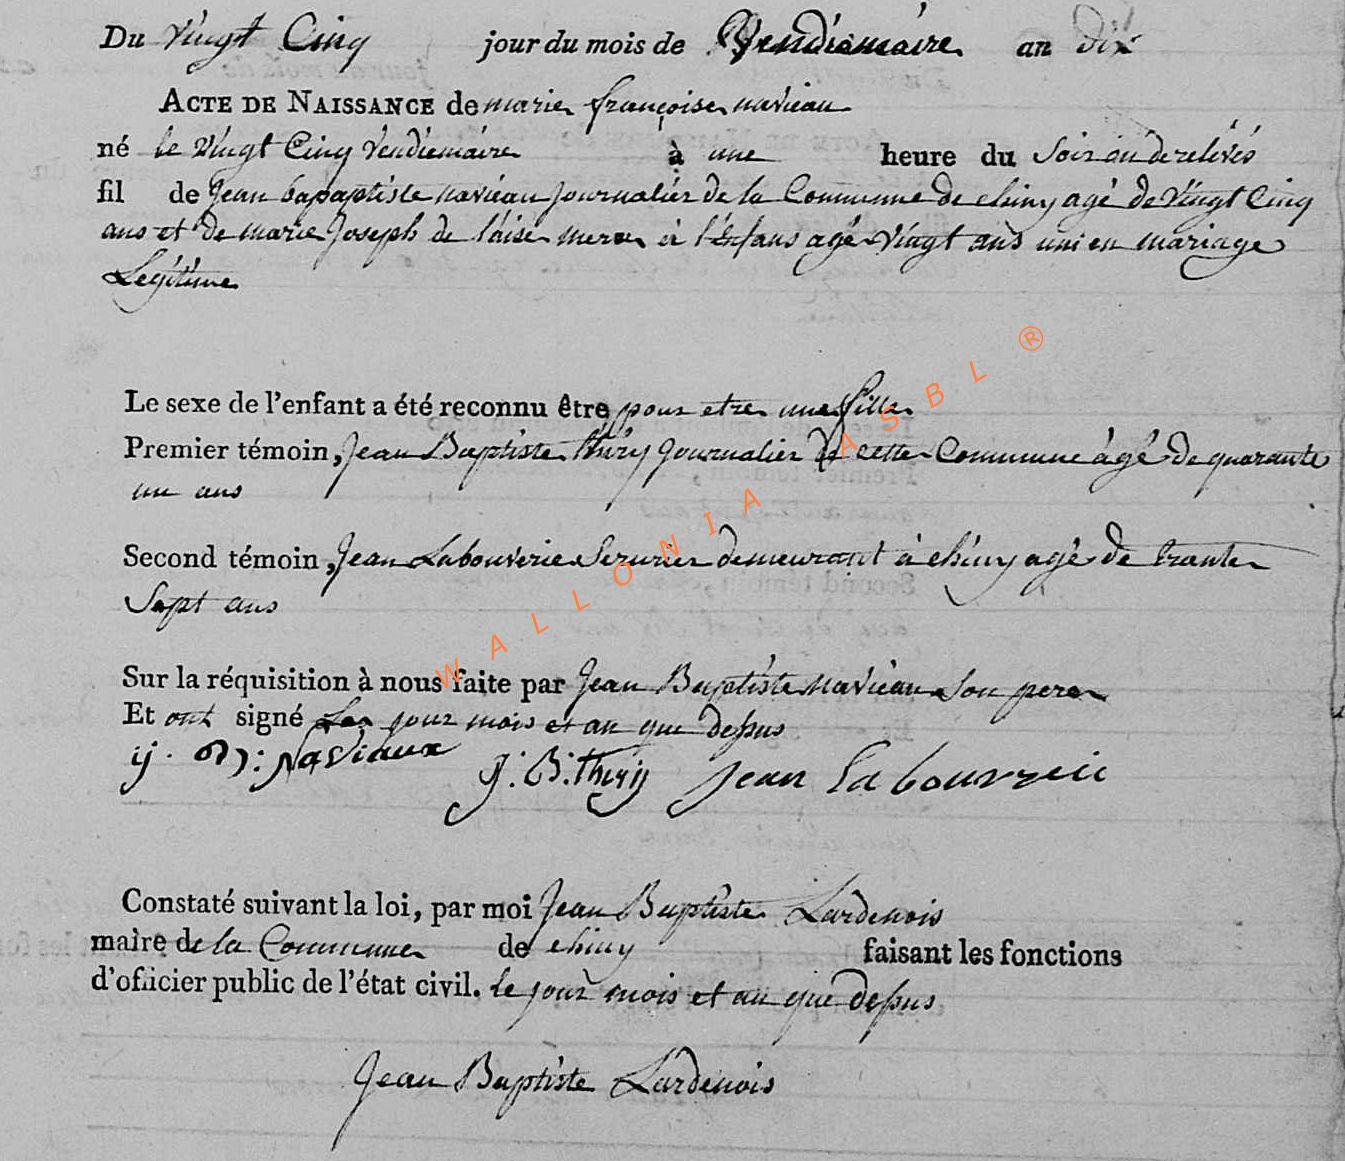 Du vingt Cinq jour du mois de Vendémiaire an dix
ACTE DE NAISSANCE de marie françoise navieau
né le vingt Cinq vendiemaire à une heure du Soir
fil de jean bapaptiste navieau journalier de la Commune de chiny agé de vingt Cinq
ans et de marie Joseph de laise mere à l'Enfans agé vingt ans uni en mariage
Legitime
Le sexe de l'enfant a été reconnu être pour etre une fille
Premier témoin, jean Baptiste thiry journalier de cette Commune àgé de quarante
un ans
Second témoin, jean Labouverie Serurier demeurant à chiny agé de trante
Sept ans
Sur la réquisition à nous faite par jean Baptiste navieau Son pere
Et ont signé Les jour mois et an que dessus
j. B: Naviaux j. B. thiry jean Labouverie
Constaté suivant la loi, par moi jean Baptiste Lardenois
maire de la Commune de chiny faisant les fonctions
d'officier public de l'état civil. le jour mois et an que dessus
Jean Baptiste Lardenois
WALLONIA ASBL ®